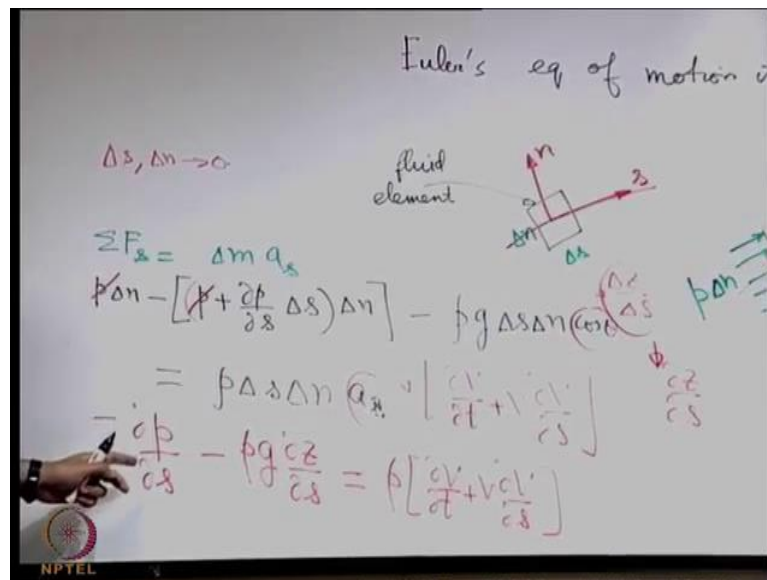 Euler's eq of motion i
Δs, Δn → 0
fluid
element
n
s
Δn
Δs
ΣFₛ = Δm aₛ
pΔn - [(p + ∂p/∂s Δs) Δn] - ρg ΔsΔn cosθ Δz/Δs
pΔn
= ρΔsΔn aₛ, [∂V/∂t + V ∂V/∂s]
∂z/∂s
- ∂p/∂s - ρg ∂z/∂s = ρ[∂V/∂t + V ∂V/∂s]
NPTEL